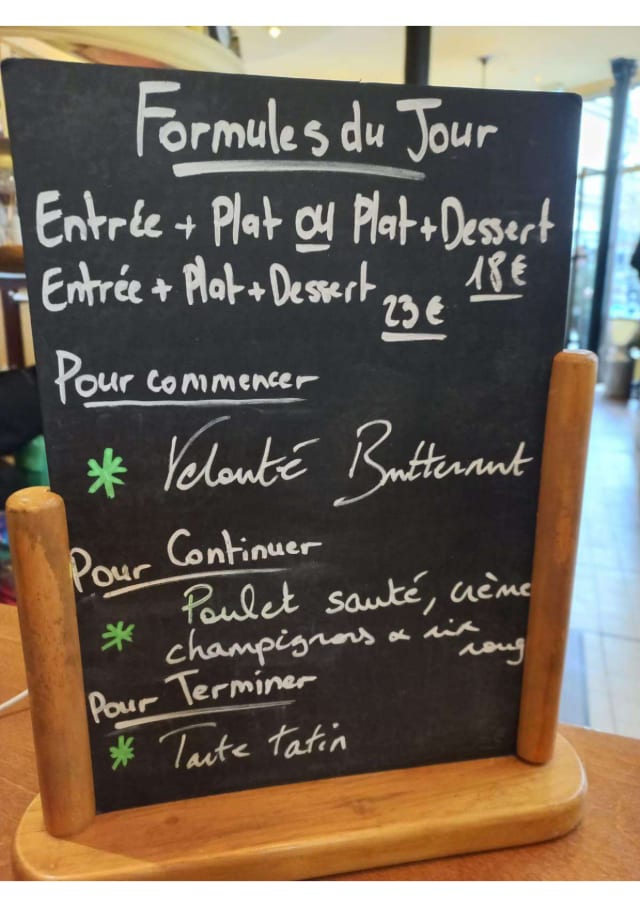 Formules du Jour
Entrée + Plat ou Plat + Dessert
18€
Entrée + Plat + Dessert
23€
Pour commencer
* Velouté Butternut
Pour Continuer
* Poulet sauté, crème
champignons & riz
roug
Pour Terminer
* Tarte tatin